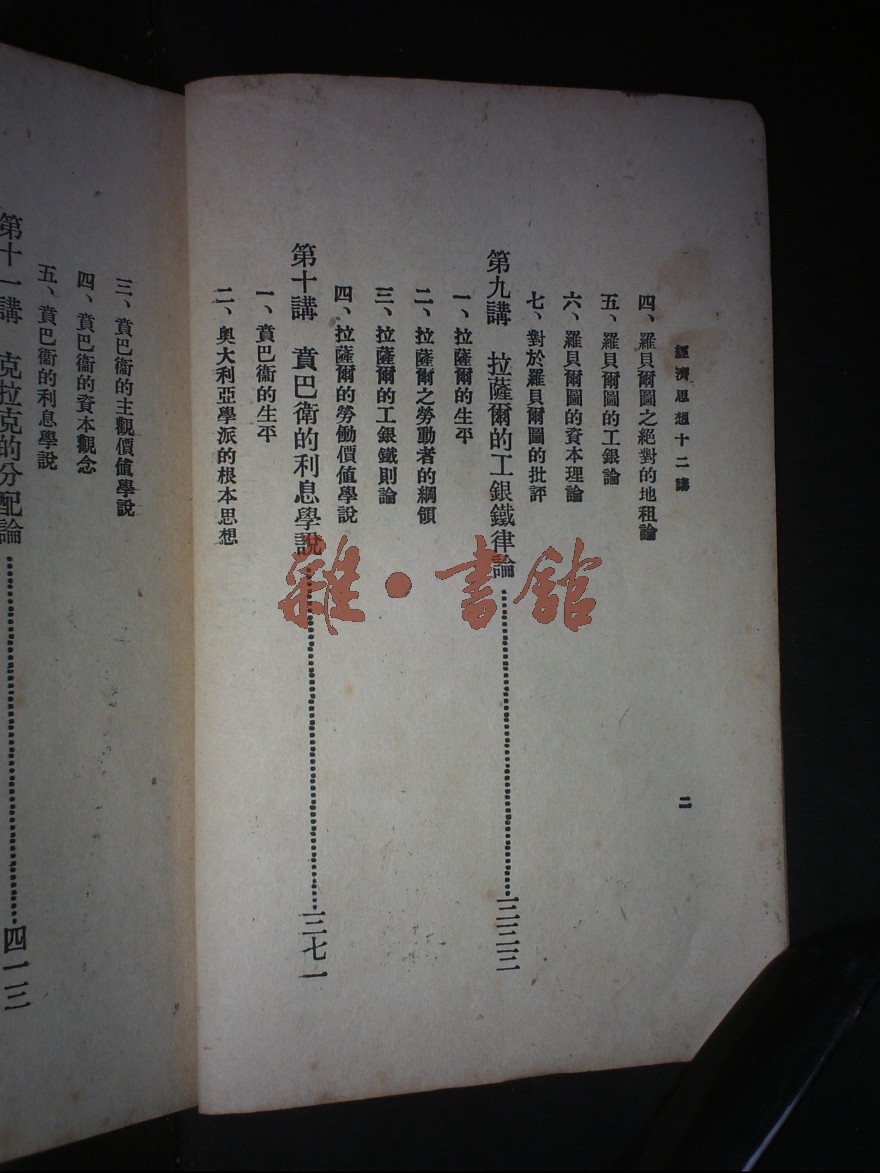 經濟思想十二講
二
四、羅貝爾圖之絕對的地租論
五、羅貝爾圖的工銀論
六、羅貝爾圖的資本理論
七、對於羅貝爾圖的批評
第九講 拉薩爾的工銀鐵律論……三二三
一、拉薩爾的生平
二、拉薩爾之勞動者的綱領
三、拉薩爾的工銀鐵則論
四、拉薩爾的勞働價值學說
第十講 賁巴衛的利息學說……三七一
一、賁巴衛的生平
二、奧大利亞學派的根本思想
三、賁巴衛的主觀價值學說
四、賁巴衛的資本觀念
五、賁巴衛的利息學說
第十一講 克拉克的分配論……四一三
雜·書館